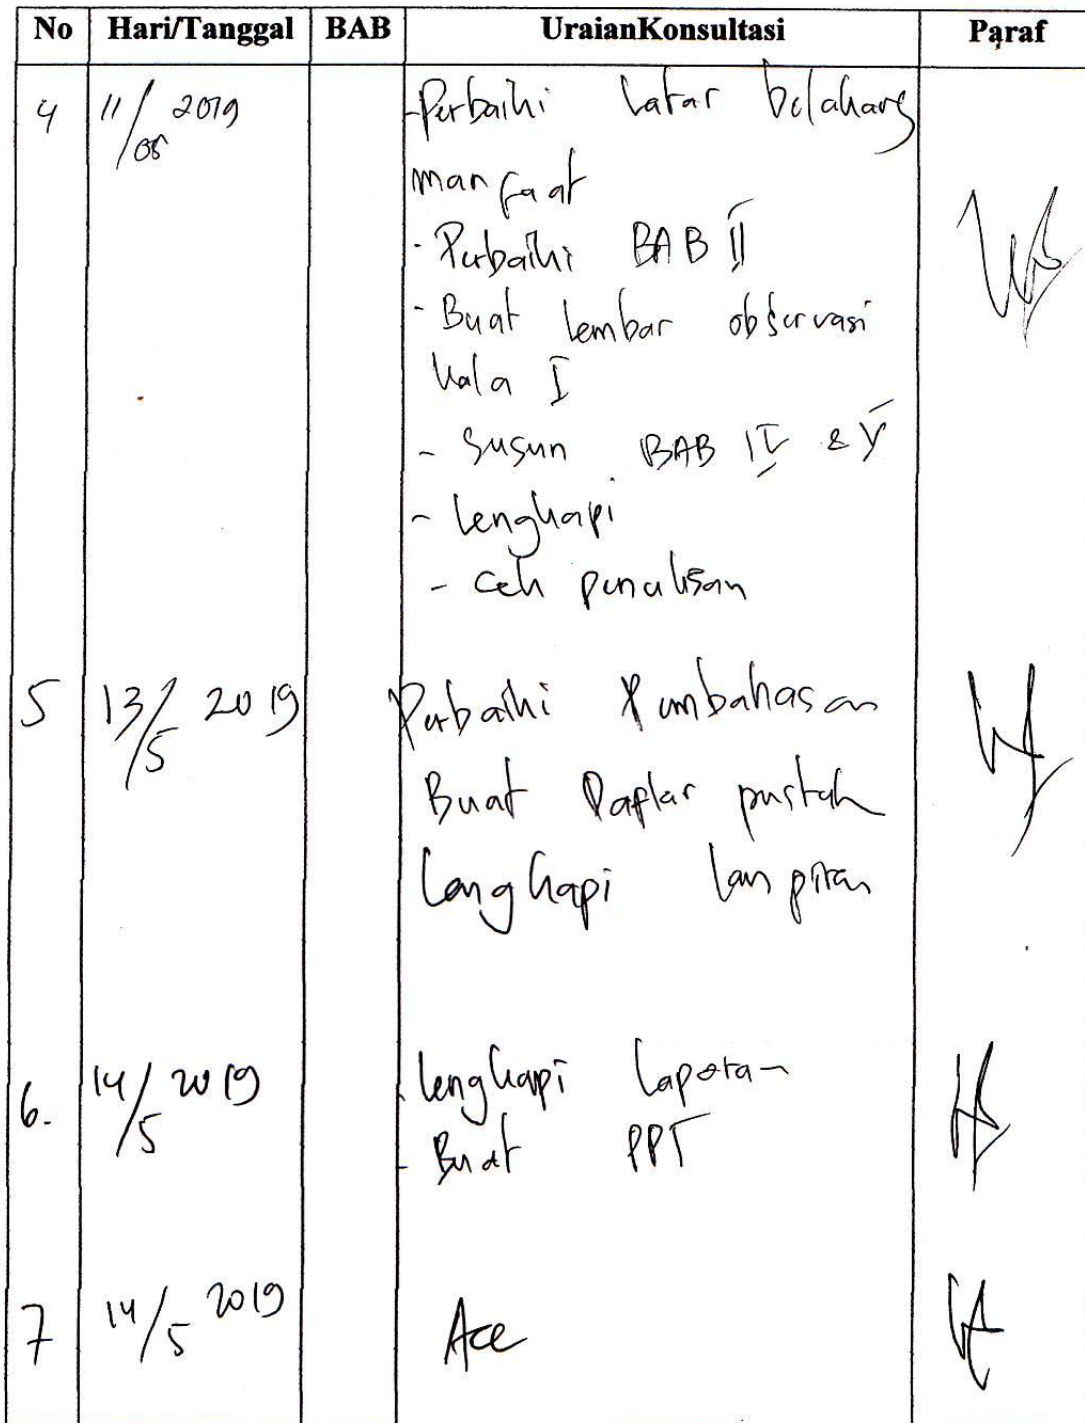 No Hari/Tanggal BAB UraianKonsultasi Paraf
4 11/05 2019 -Perbaiki latar belakang
manfaat
- Perbaiki BAB II
- Buat lembar observasi
kala I
- Susun BAB IV & V
- lengkapi
- cek penulisan
5 13/5 2019 Perbaiki Pembahasan
Buat Daftar pustak
Lengkapi lampiran
6. 14/5 2019 - lengkapi laporan
- Buat PPT
7 14/5 2019 Acc